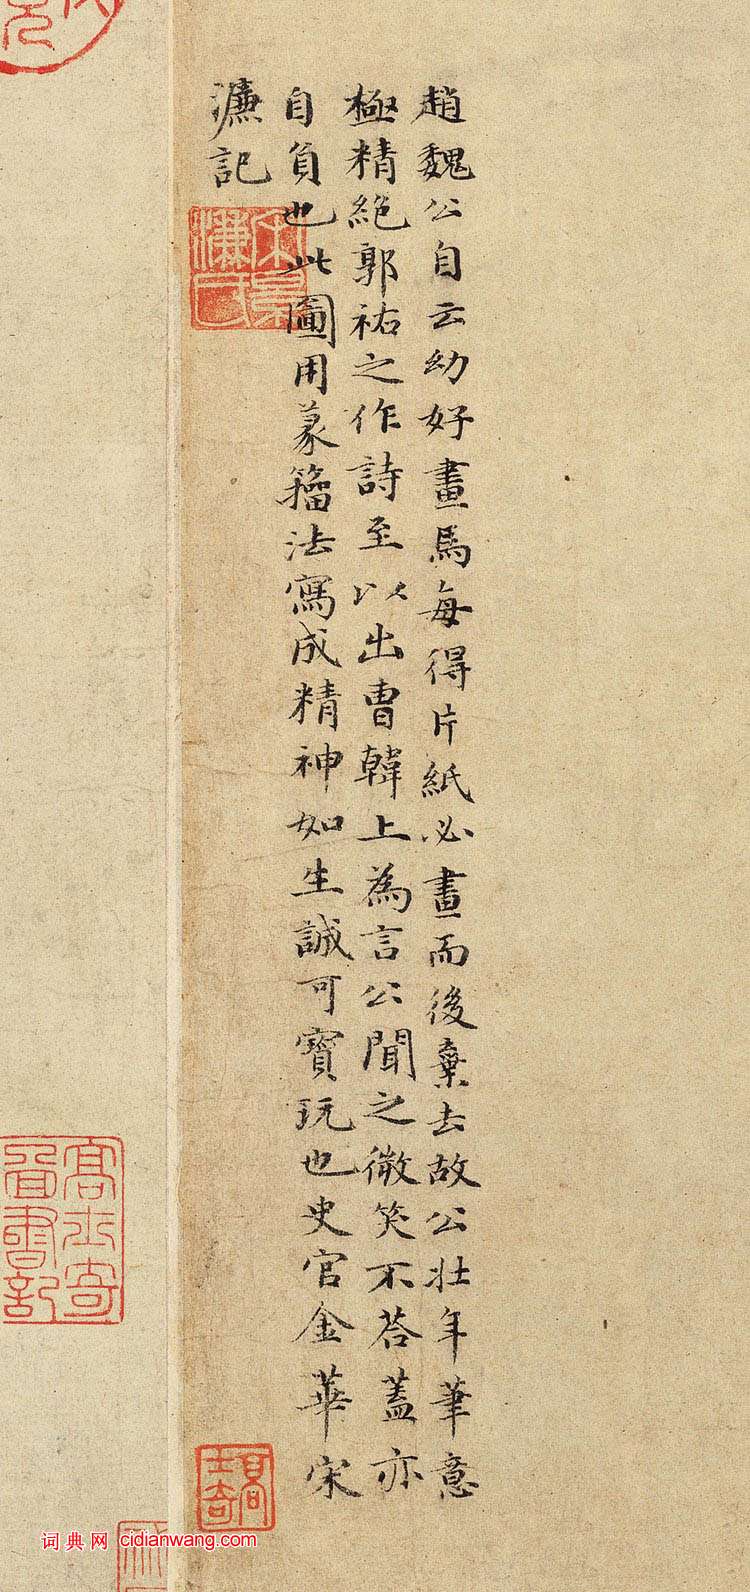 趙魏公自云幼好畫馬每得片紙必畫而後棄去故公壯年筆意
極精絕郭祐之作詩至以出曹韓上為言公聞之微笑不荅蓋亦
自負也此圖用篆籀法寫成精神如生誠可寶玩也史官金華宋
濂記
宋景濂氏
高士奇圖書記
高士奇
词典网 cidianwang.com